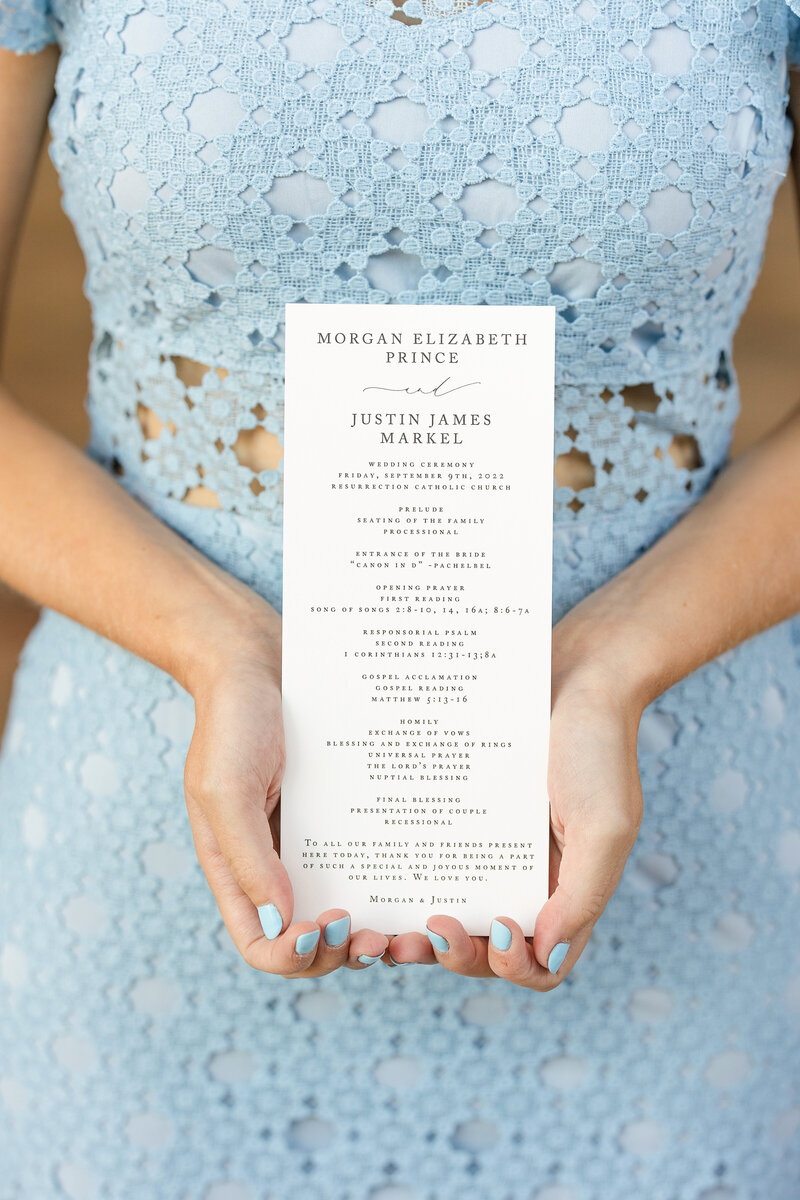 MORGAN ELIZABETH
PRINCE
and
JUSTIN JAMES
MARKEL
WEDDING CEREMONY
FRIDAY, SEPTEMBER 9TH, 2022
RESURRECTION CATHOLIC CHURCH
PRELUDE
SEATING OF THE FAMILY
PROCESSIONAL
ENTRANCE OF THE BRIDE
"CANON IN D" -PACHELBEL
OPENING PRAYER
FIRST READING
SONG OF SONGS 2:8-10, 14, 16A; 8:6-7A
RESPONSORIAL PSALM
SECOND READING
1 CORINTHIANS 12:31-13;8A
GOSPEL ACCLAMATION
GOSPEL READING
MATTHEW 5:13-16
HOMILY
EXCHANGE OF VOWS
BLESSING AND EXCHANGE OF RINGS
UNIVERSAL PRAYER
THE LORD'S PRAYER
NUPTIAL BLESSING
FINAL BLESSING
PRESENTATION OF COUPLE
RECESSIONAL
To all our family and friends present
here today, thank you for being a part
of such a special and joyous moment of
our lives. We love you.
Morgan & Justin